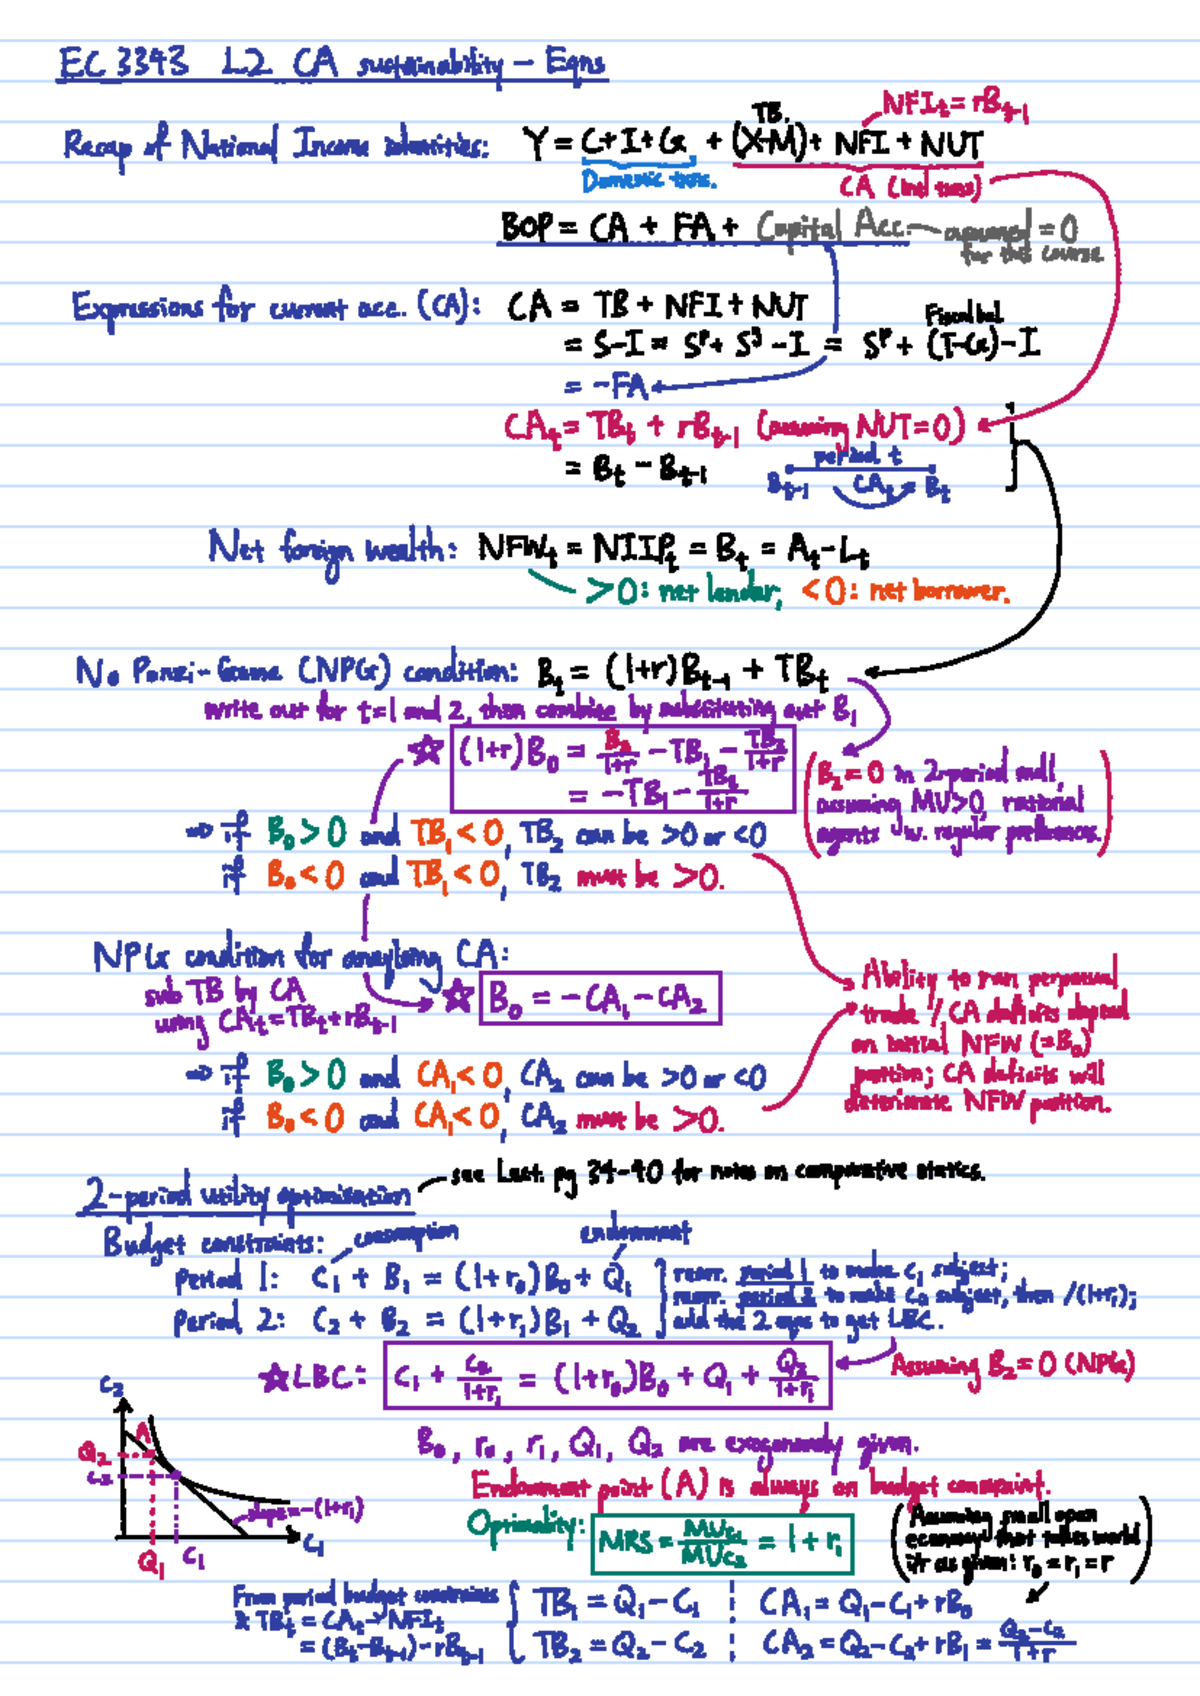 EC3343 L2 CA sustainability – Eqns
NFI_t = rB_{t-1}
TB.
Recap of National Income identities: Y = C+I+G + (X-M) + NFI + NUT
Domestic txns. CA (Intl txns)
BOP = CA + FA + Capital Acc. assumed = 0
for this course
Expressions for current acc. (CA): CA = TB + NFI + NUT
Fiscal bal.
= S-I = S^p + S^g - I = S^p + (T-G) - I
= -FA
CA_t = TB_t + rB_{t-1} (assuming NUT=0)
period t
= B_t - B_{t-1}
B_{t-1} CA_t = B_t
Net foreign wealth: NFW_t = NIIP_t = B_t = A_t - L_t
>0: net lender, <0: net borrower.
No Ponzi-Game (NPG) condition: B_t = (1+r)B_{t-1} + TB_t
write out for t=1 and 2, then combine by substituting out B_1
☆ (1+r)B_0 = B_2/(1+r) - TB_1 - TB_2/(1+r)
= -TB_1 - TB_2/(1+r)
(B_2 = 0 in 2-period mdl,
assuming MU>0, rational
agents w. regular preferences.)
⇒ if B_0 > 0 and TB_1 < 0, TB_2 can be >0 or <0
if B_0 < 0 and TB_1 < 0, TB_2 must be >0.
NPG condition for analysing CA:
sub TB by CA
using CA_t = TB_t + rB_{t-1}
☆ B_0 = -CA_1 - CA_2
⇒ if B_0 > 0 and CA_1 < 0, CA_2 can be >0 or <0
if B_0 < 0 and CA_1 < 0, CA_2 must be >0.
Ability to run perpetual
trade // CA deficits depend
on initial NFW (=B_0)
position; CA deficits will
deteriorate NFW position.
see Lect. pg 34-40 for notes on comparative statics.
2-period utility optimisation
Budget constraints: consumption endowment
Period 1: C_1 + B_1 = (1+r_0)B_0 + Q_1
Period 2: C_2 + B_2 = (1+r_1)B_1 + Q_2
rearr. period 1 to make C_1 subject;
rearr. period 2 to make C_2 subject, then /(1+r_1);
add the 2 eqns to get LBC.
☆ LBC: C_1 + C_2/(1+r_1) = (1+r_0)B_0 + Q_1 + Q_2/(1+r_1)
Assuming B_2 = 0 (NPG)
C_2
A
Q_2
C_2
slope = -(1+r_1)
C_1
Q_1 C_1
B_0, r_0, r_1, Q_1, Q_2 are exogenously given.
Endowment point (A) is always on budget constraint.
Optimality: MRS = MU_{C1}/MU_{C2} = 1+r_1
(Assuming small open
economy that takes world
i/r as given: r_0 = r_1 = r)
From period budget constraints
& TB_t = CA_t - NFI_t
= (B_t - B_{t-1}) - rB_{t-1}
TB_1 = Q_1 - C_1 CA_1 = Q_1 - C_1 + rB_0
TB_2 = Q_2 - C_2 CA_2 = Q_2 - C_2 + rB_1 = (Q_2 - C_2)/(1+r)